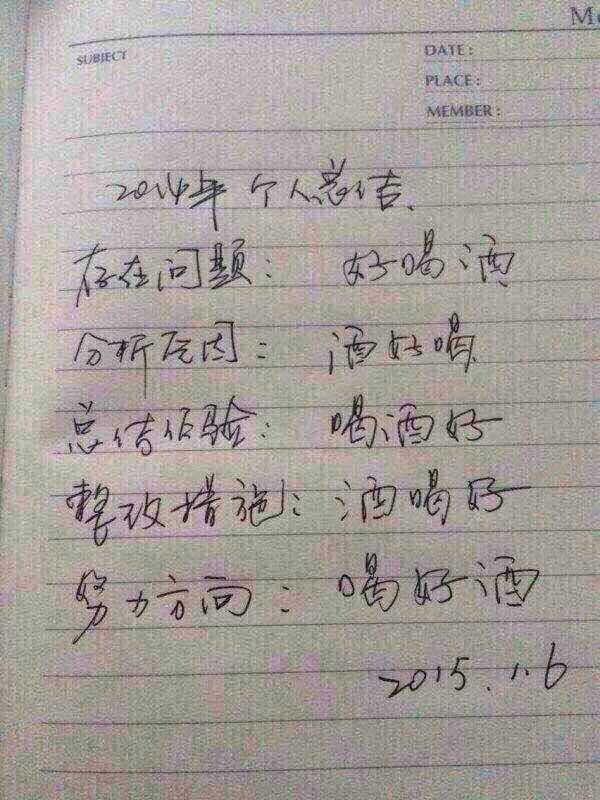 Me
SUBJECT
DATE :
PLACE :
MEMBER :
2014年 个人总结.
存在问题： 好喝酒
分析原因： 酒好喝
总结经验： 喝酒好
整改措施： 酒喝好
努力方向： 喝好酒
2015.1.6